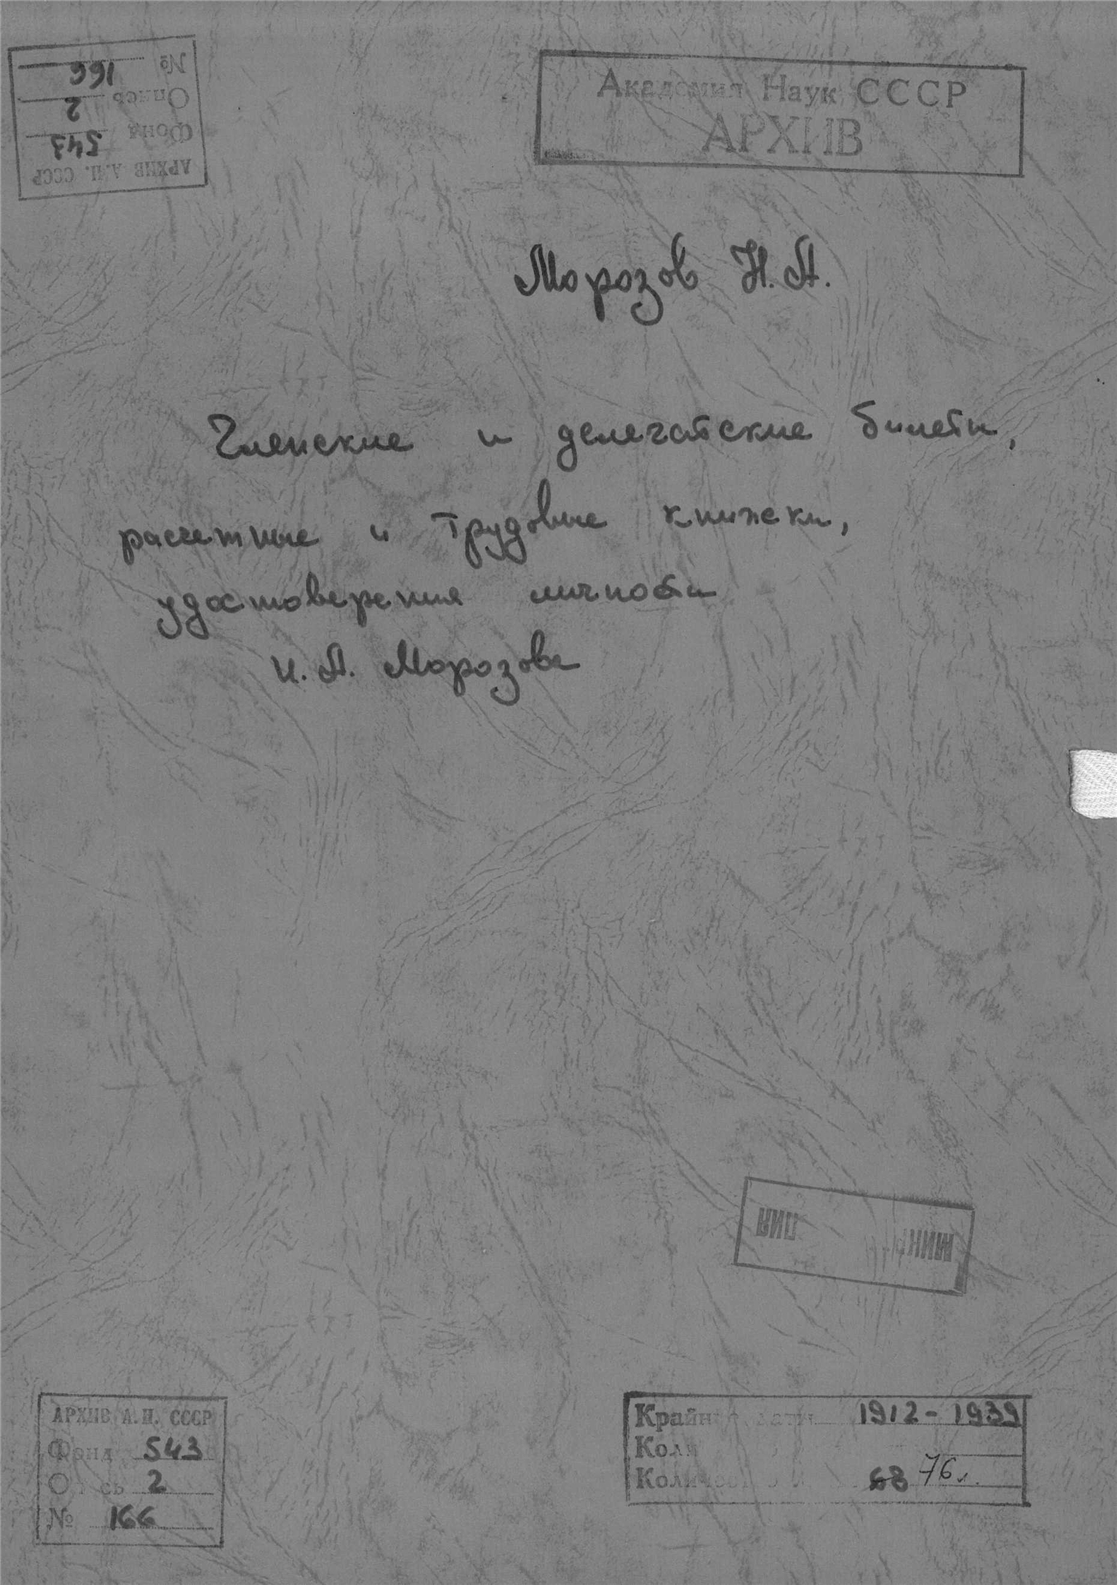 № 166
Опись 2
Фонд 543
АРХИВ А.Н. СССР
Академия Наук СССР
АРХИВ
Морозов Н.А.
Членские и делегатские билеты,
расчетные и трудовые книжки,
удостоверения личности
Н.А. Морозова
АРХИВ А.Н. СССР
Фонд 543
О сь 2
№ 166
Крайн дати 1912-1939
Кол
Количес 68 76 л.